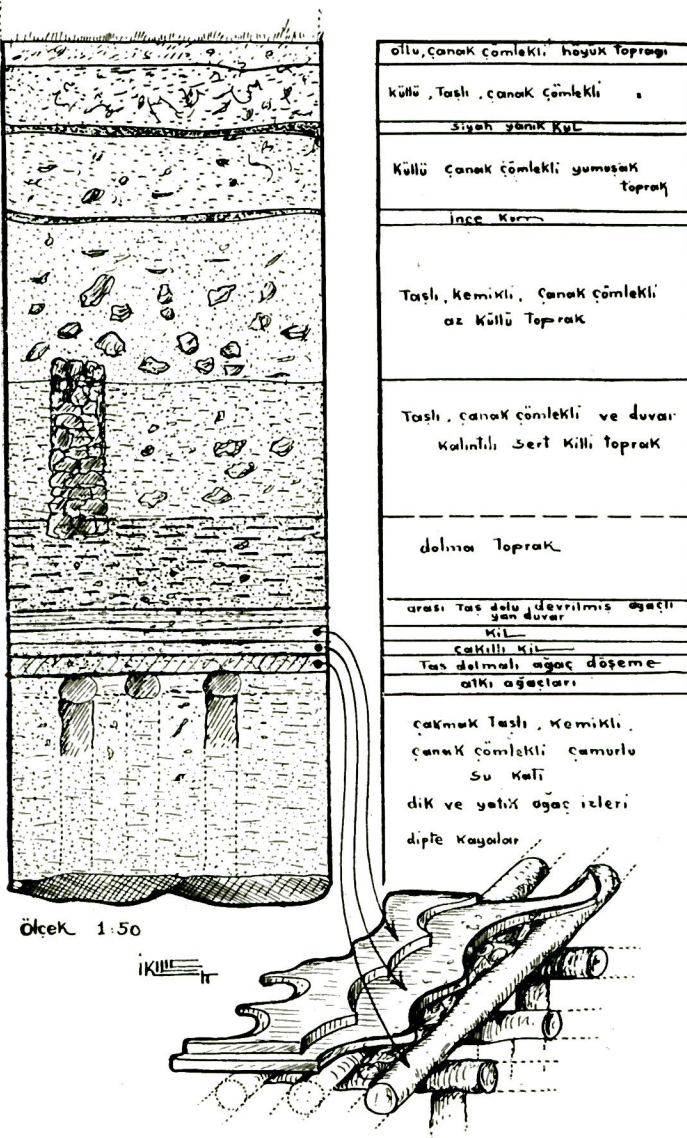 otlu, çanak çömlekli höyük toprağı
küllü, Taşlı, çanak çömlekli "
siyah yanık KUL
Küllü çanak çömlekli yumuşak
toprak
ince Kum
Taşlı, kemikli, çanak çömlekli
az Küllü Toprak
Taşlı, çanak çömlekli ve duvar
kalıntılı sert Killi toprak
dolma Toprak
arası Taş dolu, devrilmiş ağaçlı
yan duvar
KiL
çakıllı KiL
Taş dolmalı ağaç döşeme
atkı ağaçları
çakmak Taşlı, Kemikli,
çanak çömlekli çamurlu
su Katı
dik ve yatık ağaç izleri
dipte Kayalar
ölçek 1:50